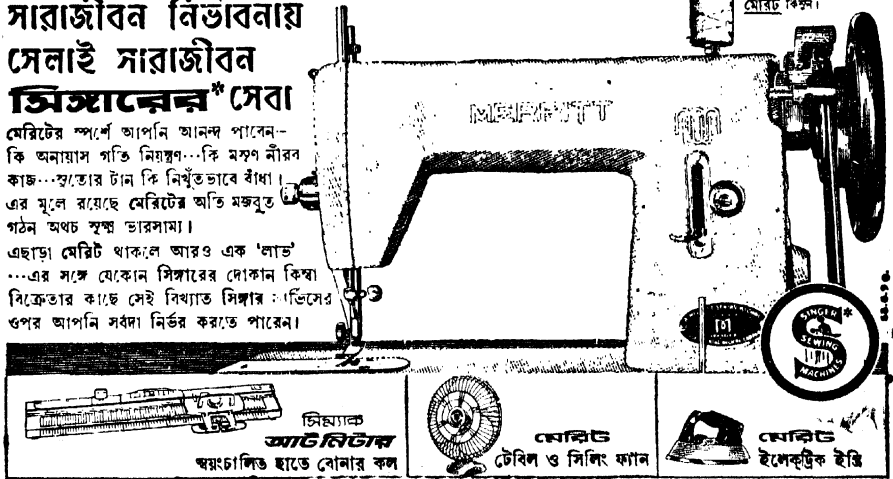 মেরিট কিনুন।
সারাজীবন নির্ভাবনায়
সেলাই সারাজীবন
সিঙ্গারের* সেবা
মেরিটের স্পর্শে আপনি আনন্দ পাবেন—
কি অনায়াস গতি নিয়ন্ত্রণ···কি মসৃণ নীরব
কাজ···সুতোর টান কি নিখুঁতভাবে বাঁধা।
এর মূলে রয়েছে মেরিটের অতি মজবুত
গঠন অথচ সূক্ষ্ম ভারসাম্য।
এছাড়া মেরিট থাকলে আরও এক 'লাভ'
···এর সঙ্গে যেকোন সিঙ্গারের দোকান কিম্বা
বিক্রেতার কাছে সেই বিখ্যাত সিঙ্গার সার্ভিসের
ওপর আপনি সর্বদা নির্ভর করতে পারেন।
MERRITT
SINGER*
S
SEWING
MACHINES
সিম্যাক
অটমিটার
স্বয়ংচালিত হাতে বোনার কল
মেরিট
টেবিল ও সিলিং ফ্যান
মেরিট
ইলেকট্রিক ইস্ত্রি